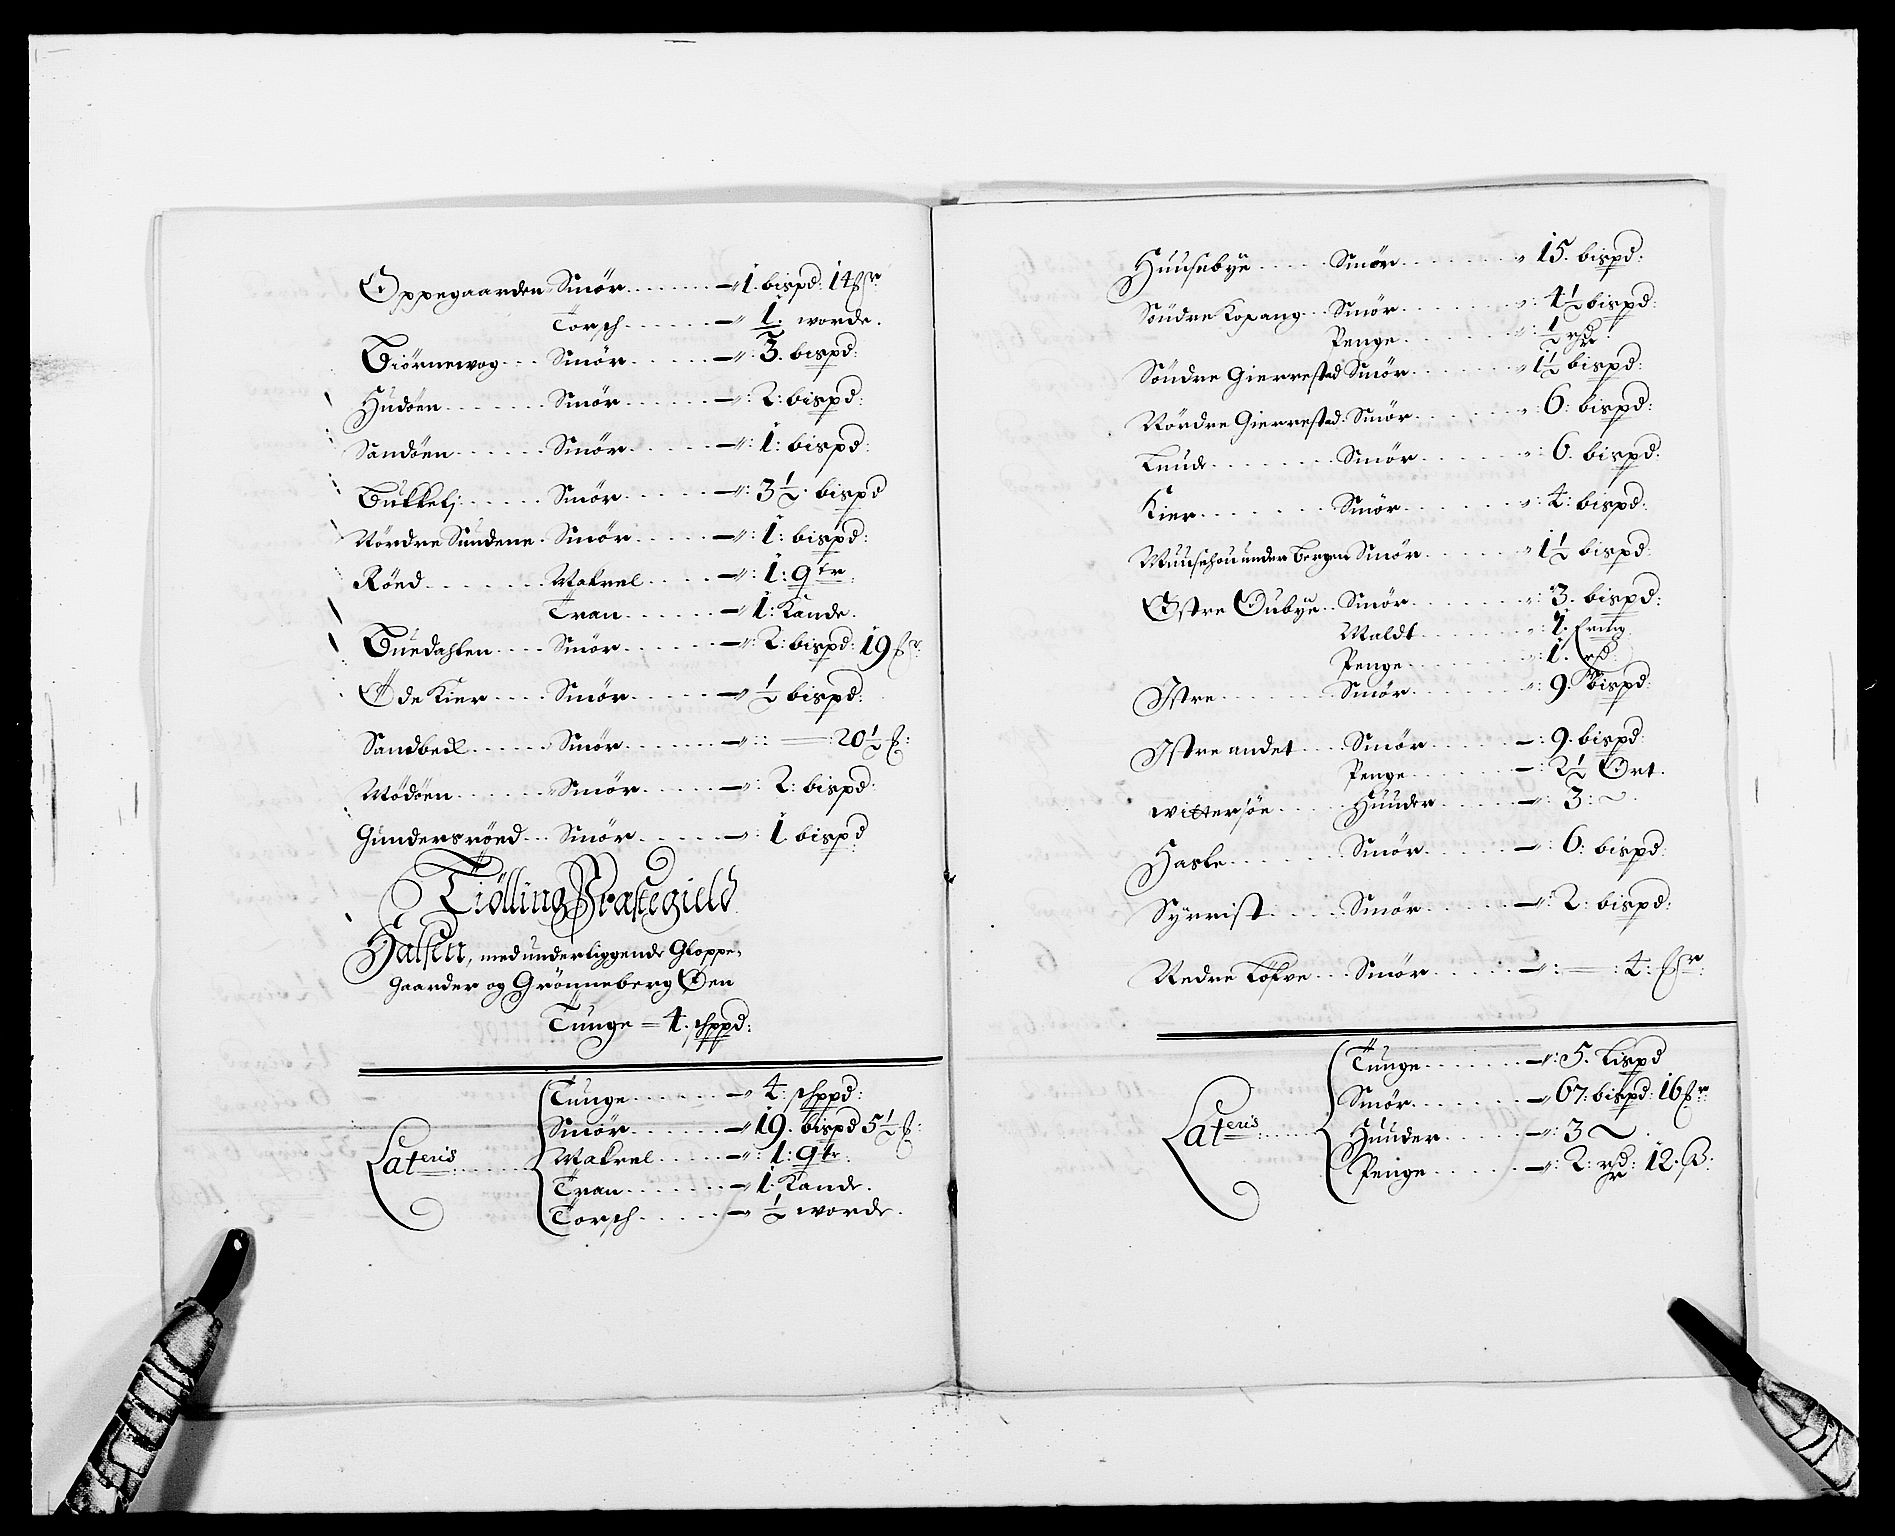 Oppegaarden Smör ....... 1. bispd: 14 ℔r
Torsch ...... ½. worde.
Biörnevog ... Smör ...... 3. bispd:
Hudöen ....... Smör ...... 2: bispd:
Sandöen ...... Smör ...... 1: bispd:
Bukkelj ...... Smör ...... 3½. bispd
Nördre Sundene. Smör ..... 1: bispd:
Röed ....... Makrel .... 1: qtr
Tran ...... 1: Kande.
Buedahlen .... Smör ..... 2: bispd: 19 ℔r
Öde Kier .... Smör ...... ½ bispd:
Sandbech ..... Smör ....... 20½ ℔:
Mödöen ...... Smör ...... 2: bispd:
Gundersröed ... Smör ...... 1 bispd
Tiølling Præstegield
Halsen, med underliggende Gloppe-
gaarder og Grönneberg Öen
Tunge = 4. schppd:
Lateris
Tunge ...... 4: schppd:
Smör ...... 19. bispd 5½ ℔:
Makrel ..... 1: qtr.
Tran ....... 1. Kande.
Torsch ..... ½ worde.
Huusebye ..... Smör ........ 15. bispd:
Söndre Kopang ... Smör ....... 4½ bispd:
Penge ....... ½ rd.
Söndre Gierrestad Smör ....... 1½ bispd:
Nördre Gierrestad. Smör ....... 6: bispd:
Lunde ........ Smör ....... 6. bispd:
Kier ........ Smör ....... 4: bispd:
Muusehou under bergen Smör ...... 1½ bispd:
Østre Oubye .. Smör ....... 3. bispd:
Maldt ....... 1.
Penge ....... 1. rd.
Istre ....... Smör ....... 9. bispd:
Istre andet .... Smör ...... 9. bispd:
Penge ...... 2½ Ort.
Wittersöe ..... Huuder ...... 3: ~
Hasle ....... Smör ...... 6: bispd:
Syrrist ..... Smör ...... 2: bispd:
Nedre Löfve ... Smör ...... 4: ℔r
Lateris
Tunge ....... 5. Lispd
Smör ....... 67: bispd: 16 ℔r
Huuder ...... 3 ~
Penge ...... 2: rd: 12. ß: